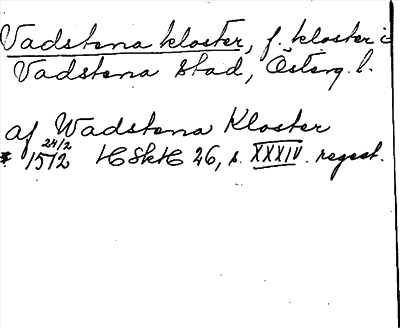 Vadstena kloster, f. kloster i
Vadstena stad, Österg. l.
af Wadstena Kloster
24/2
1572 HSkH 26, s. XXXIV. regest.